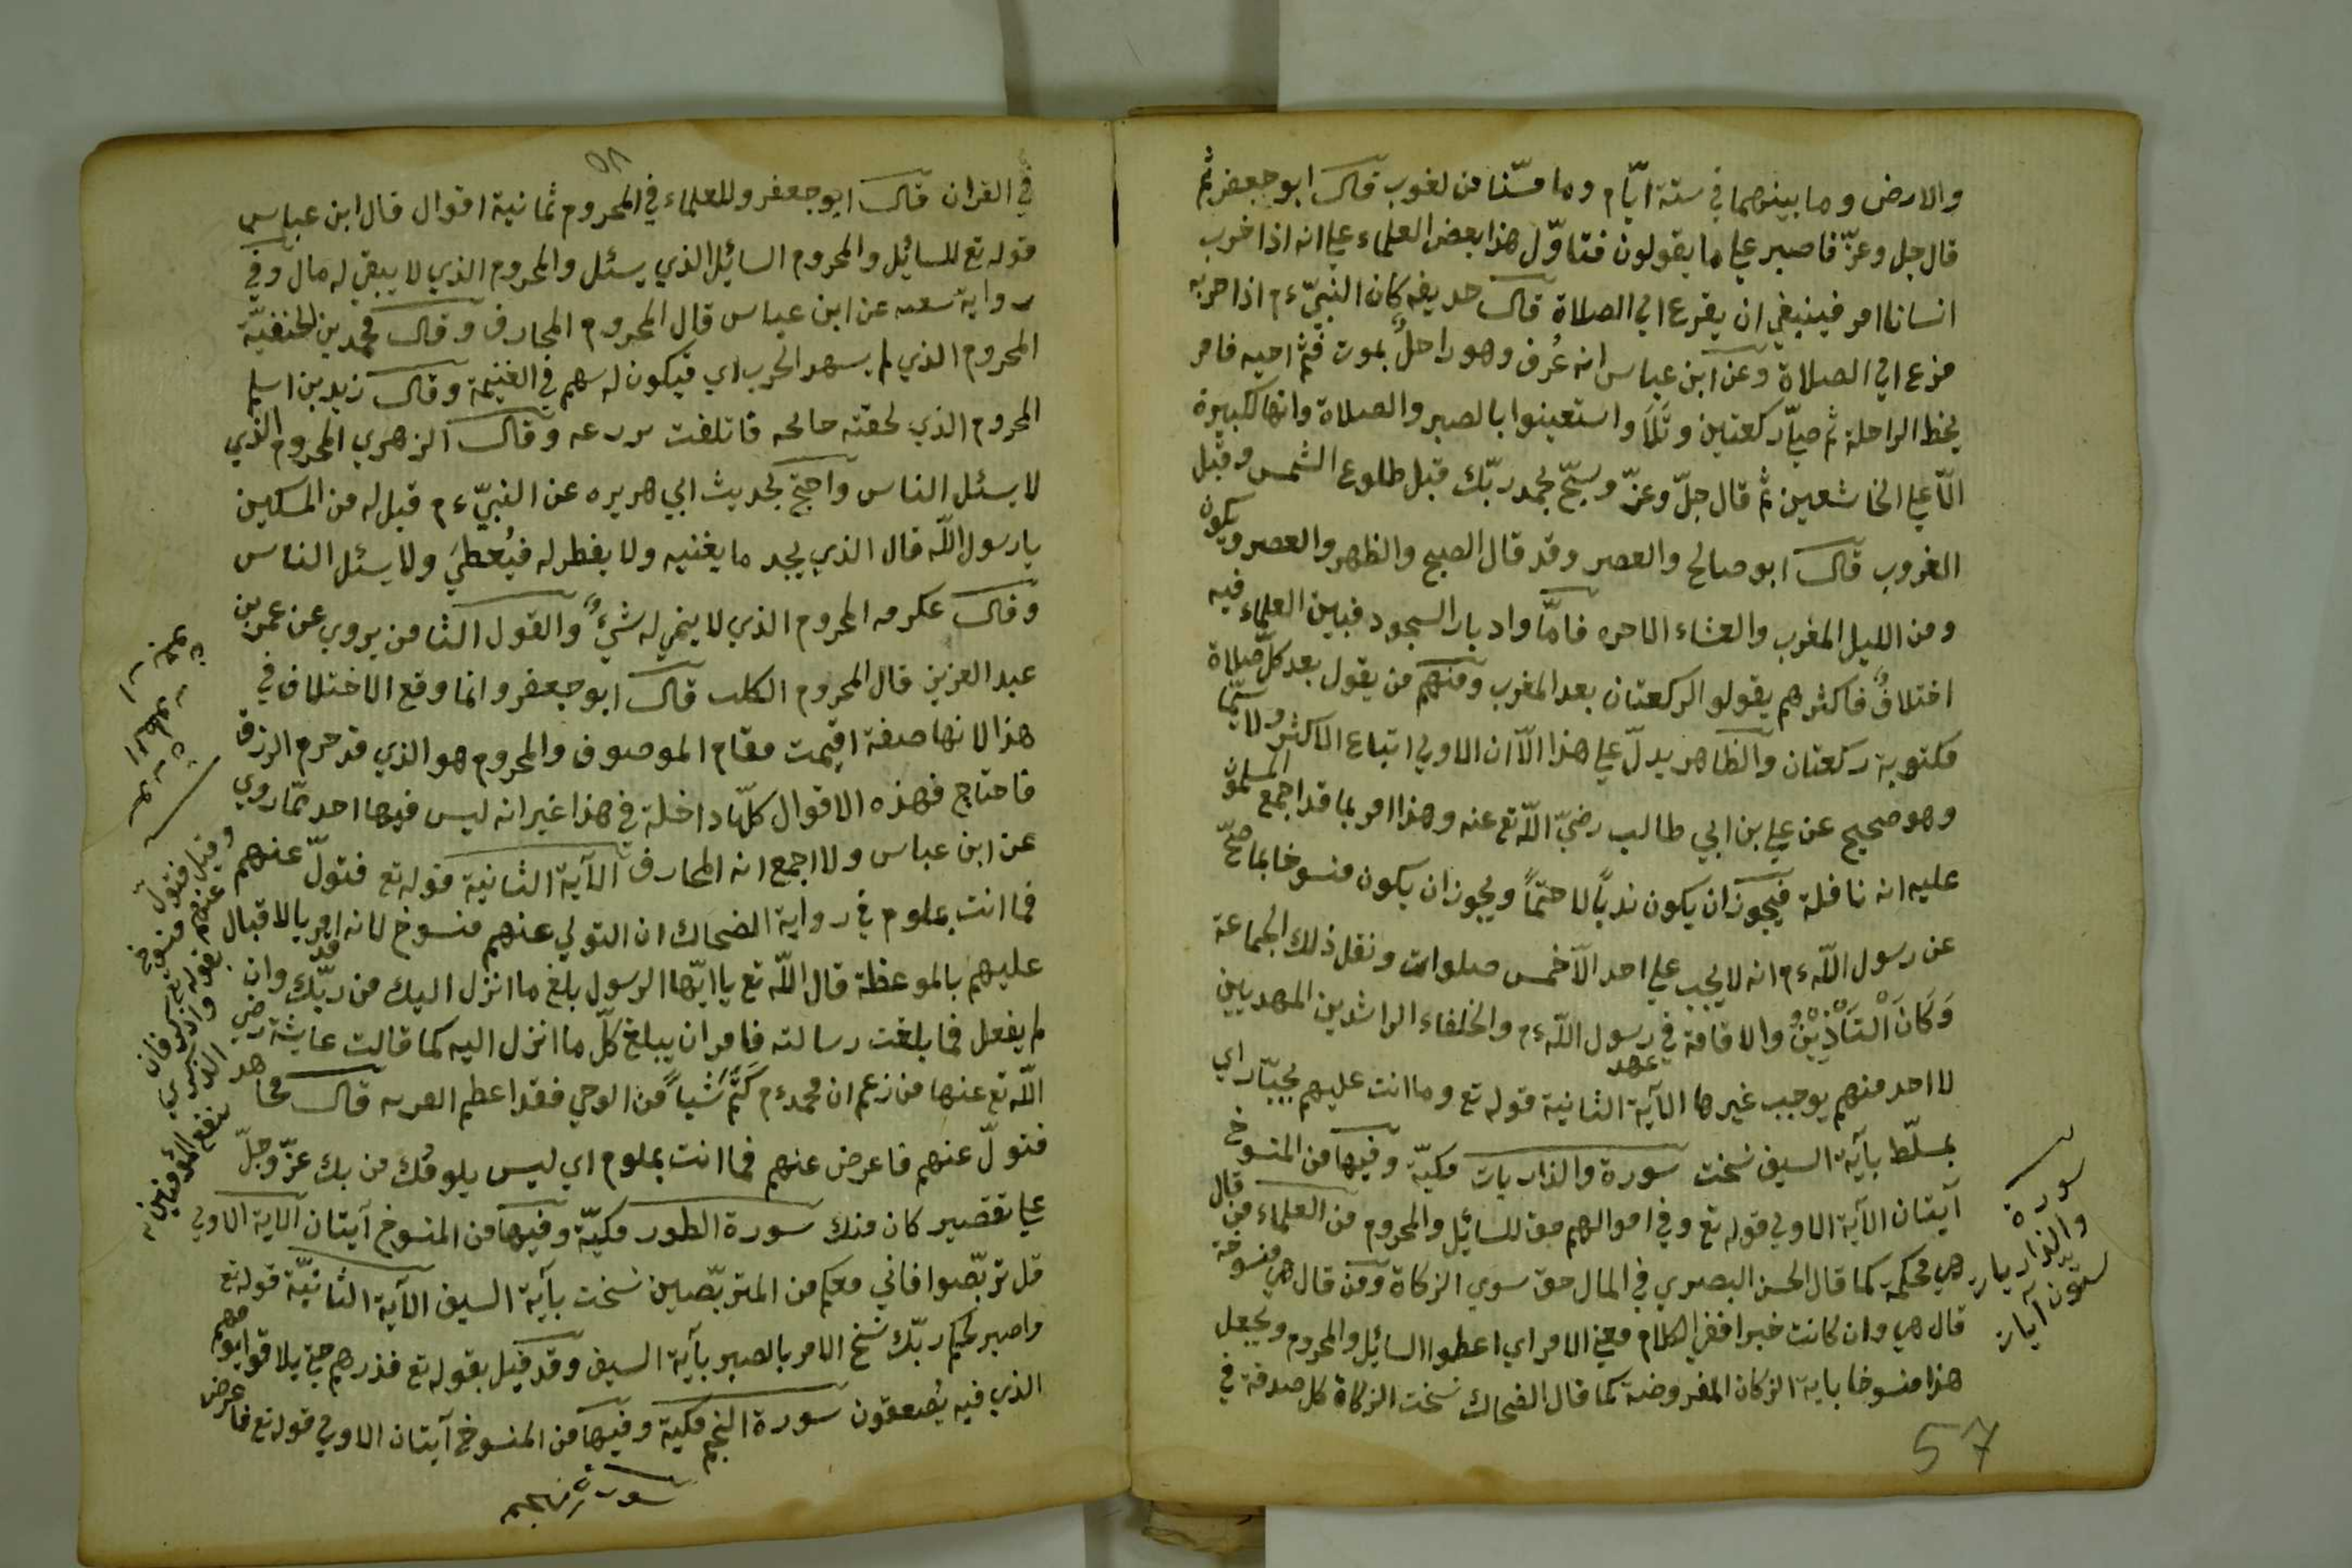 والارض وما بينهما في ستة ايّام وما مسّنا من لغوب قال ابو جعفر ثم
قال جل وعزّ فاصبر علي ما يقولون فتاوّل هذا بعض العلماء علي انه اذا حزب
انسانا امر فينبغي ان يفزع الي الصلاة قال حديفه كان النبيّ ءم اذا حزبه
فزع الي الصلاة وعن ابن عباس انه عُرف وهو راحلٌ بموت قثم اخيه فامر
بحط الراحلة ثم صلّي ركعتين وتَلَا واستعينوا بالصبر والصلاة وانها لكبيرة
الّا علي الخاشعين ثم قال جلّ وعزّ وسبّح بحمد ربّك قبل طلوع الشمس وقبل
الغروب قال ابو صالح والعصر وقد قال الصبح والظهر والعصر ويكون
ومن الليل المغرب والعشاء الاخره فامّا وادبار السجود فبين العلماء فيه
اختلافٌ فاكثرهم يقولو الركعتان بعد المغرب ومنهم من يقول بعد كلّ صلاة
مكتوبة ركعتان والظاهر يدلّ علي هذا الّا ان الاولي اتباع الاكثر ولا سيّما
وهو صحيح عن علي بن ابي طالب رضيّ اللّه تع عنه وهذا امر بما قد اجمع المسلمون
عليه انه نافلة فيجوز ان يكون ندباً لا حتماً ويجوز ان يكون منسوخا بما صحّ
عن رسول اللّه ءم انه لا يجب علي احد الّا خمس صلوات ونقل ذلك الجماعة
وَكَانَ التَّأْذِيْنُ والاقامة في عهد رسول اللّه ءم والخلفاء الراشدين المهديين
لا احد منهم يوجب غيرها الآية الثانية قوله تع وما انت عليهم بجبّار اي
بمسلّط بآية السيف نسخت سورة والذاريات مكيّة وفيها من المنسوخ
آيتان الآية الاولي قوله تع وفي اموالهم حق للسائيل والمحروم من العلماء من قال
هي محكمة كما قال الحسن البصري في المال حق سوي الزكاة ومن قال هي منسوخة
قال هي وان كانت خبرا ففي الكلام معني الامر اي اعطوا السائيل والمحروم ويجعل
هذا منسوخا باية الزكان المفروضة كما قال الضحاك نسخت الزكاة كل صدقة في
سورة
والذاريات
ستّون آيات
57
في القران قال ابو جعفر وللعلماء في المحروم ثمانية اقوال قال ابن عباس
قوله تع للسائيل والمحروم السائيل الذي يسئل والمحروم الذي لا يبقي له مال وفي
رواية سعيد عن ابن عباس قال المحروم المحارف وقال محمد بن الحنفيّة
المحروم الذي لم يشهد الحرب اي فيكون له سهم في الغنيمة وقال زيد بن اسلم
المحروم الذي لحقته جائحه فاتلفت زرعه وقال الزهري المحروم الذي
لا يسئل الناس واحتج بحديث ابي هريره عن النبيّ ءم قيل له من المسكين
يارسول اللّه قال الذي يجد ما يغنيه ولا يفطر له فيُعطيَ ولا يسئل الناس
وقال عكرمه المحروم الذي لا ينمي له شيءٌ والقول الثامن يروي عن عمر بن
عبد العزيز قال المحروم الكلب قال ابو جعفر وانما وقع الاختلاف في
هذا لانها صفة اقيمت مقام الموصوف والمحروم هو الذي قد حرم الرزق
فاحتاج فهذه الاقوال كلّها داخلة في هذا غير انه ليس فيها احد مما روي
عن ابن عباس ولا اجمع انه المحارف الآية الثانية قوله تع فتولّ عنهم
فما انت بملوم في رواية الضحاك ان التولي عنهم منسوخ لانه قد امر بالاقبال
عليهم بالموعظة قال اللّه تع يا ايّها الرسول بلّغ ما انزل اليك من ربّك وان
لم يفعل فما بلغت رسالته فامر ان يبلغ كلّ ما انزل اليه كما قالت عايشة رضي
اللّه تع عنها من زعم ان محمد ءم كَتَمَ شَيْاً من الوحي فقد اعظم الفريه قال مجاهد
فتولّ عنهم فاعرض عنهم فما انت بملوم اي ليس يلومُك من بك عزّ وجلّ
علي تقصير كان منك سورة الطور مكيّة وفيها من المنسوخ آيتان الآية الاولي
قل تربّصوا فاني معكم من المتربّصين نسخت بآية السيف الآية الثانيّة قوله تع
واصبر لحكم ربّك نسخ الامر بالصبر بآية السيف وقد قيل بقوله تع فذرهم حتي يلاقو ايومهم
الذي فيه يُصعقون سورة النجم مكية وفيها من المنسوخ آيتان الاولي قوله تع فاعرض
وقيل فتولّ
عنهم منسوخ
بقوله تع
وذكر فان
الذكري
تنفع المؤمنين
سورة النجم